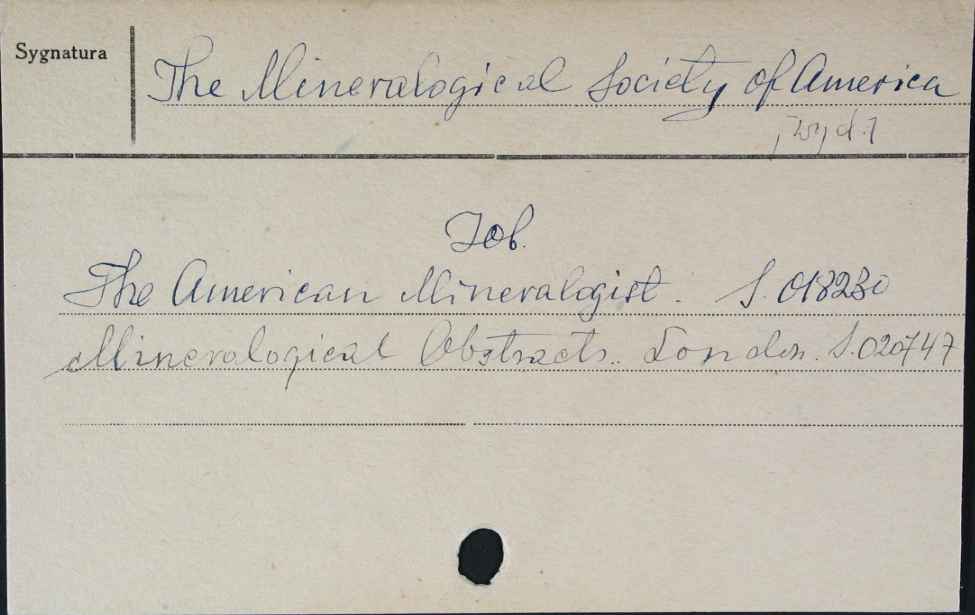 Sygnatura
The Mineralogical Society of America
[wyd.]
Zob.
The American Mineralogist. S. 018230
Mineralogical Abstracts. London. S. 020747